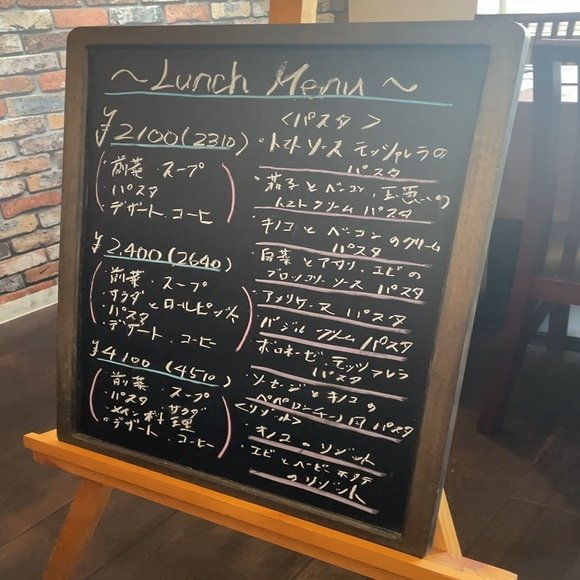 ～Lunch Menu～
¥2100(2310)
前菜 スープ
・パスタ
・デザート、コーヒ
¥2,400(2640)
前菜 スープ
・サラダ
・パスタ
・デザート、コーヒー
¥4100(4510)
前菜 スープ
・パスタ サラダ
・メイン料理
・デザート、コーヒー
＜パスタ＞
・トマトソース モッツァレラの
パスタ
・茄子とベーコン、玉葱の
トマトクリーム パスタ
・キノコとベーコンのクリーム
パスタ
・白菜とアサリ、エビの
ソース パスタ
・アメリケーヌ パスタ
・バジルクリーム パスタ
・ボロネーゼ モッツァレラ
パスタ
・ソーセージとキノコの
ペペロンチーノ風 パスタ
＜リゾット＞
・キノコのリゾット
・エビとベビーホタテ
のリゾット